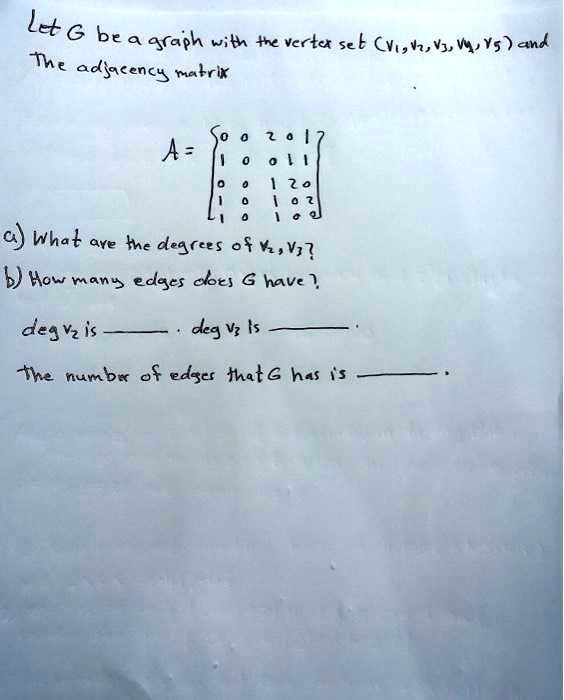 Let G be a graph with the vertex set (V1, V2, V3, V4, V5) and
The adjacency matrix
A = [0 0 2 0 1
1 0 0 1 1
0 0 1 2 0
1 0 1 0 2
1 0 1 0 2]
a) What are the degrees of V2, V3?
b) How many edges does G have?
deg V2 is ______ . deg V3 Is ______ .
The number of edges that G has is ______ .